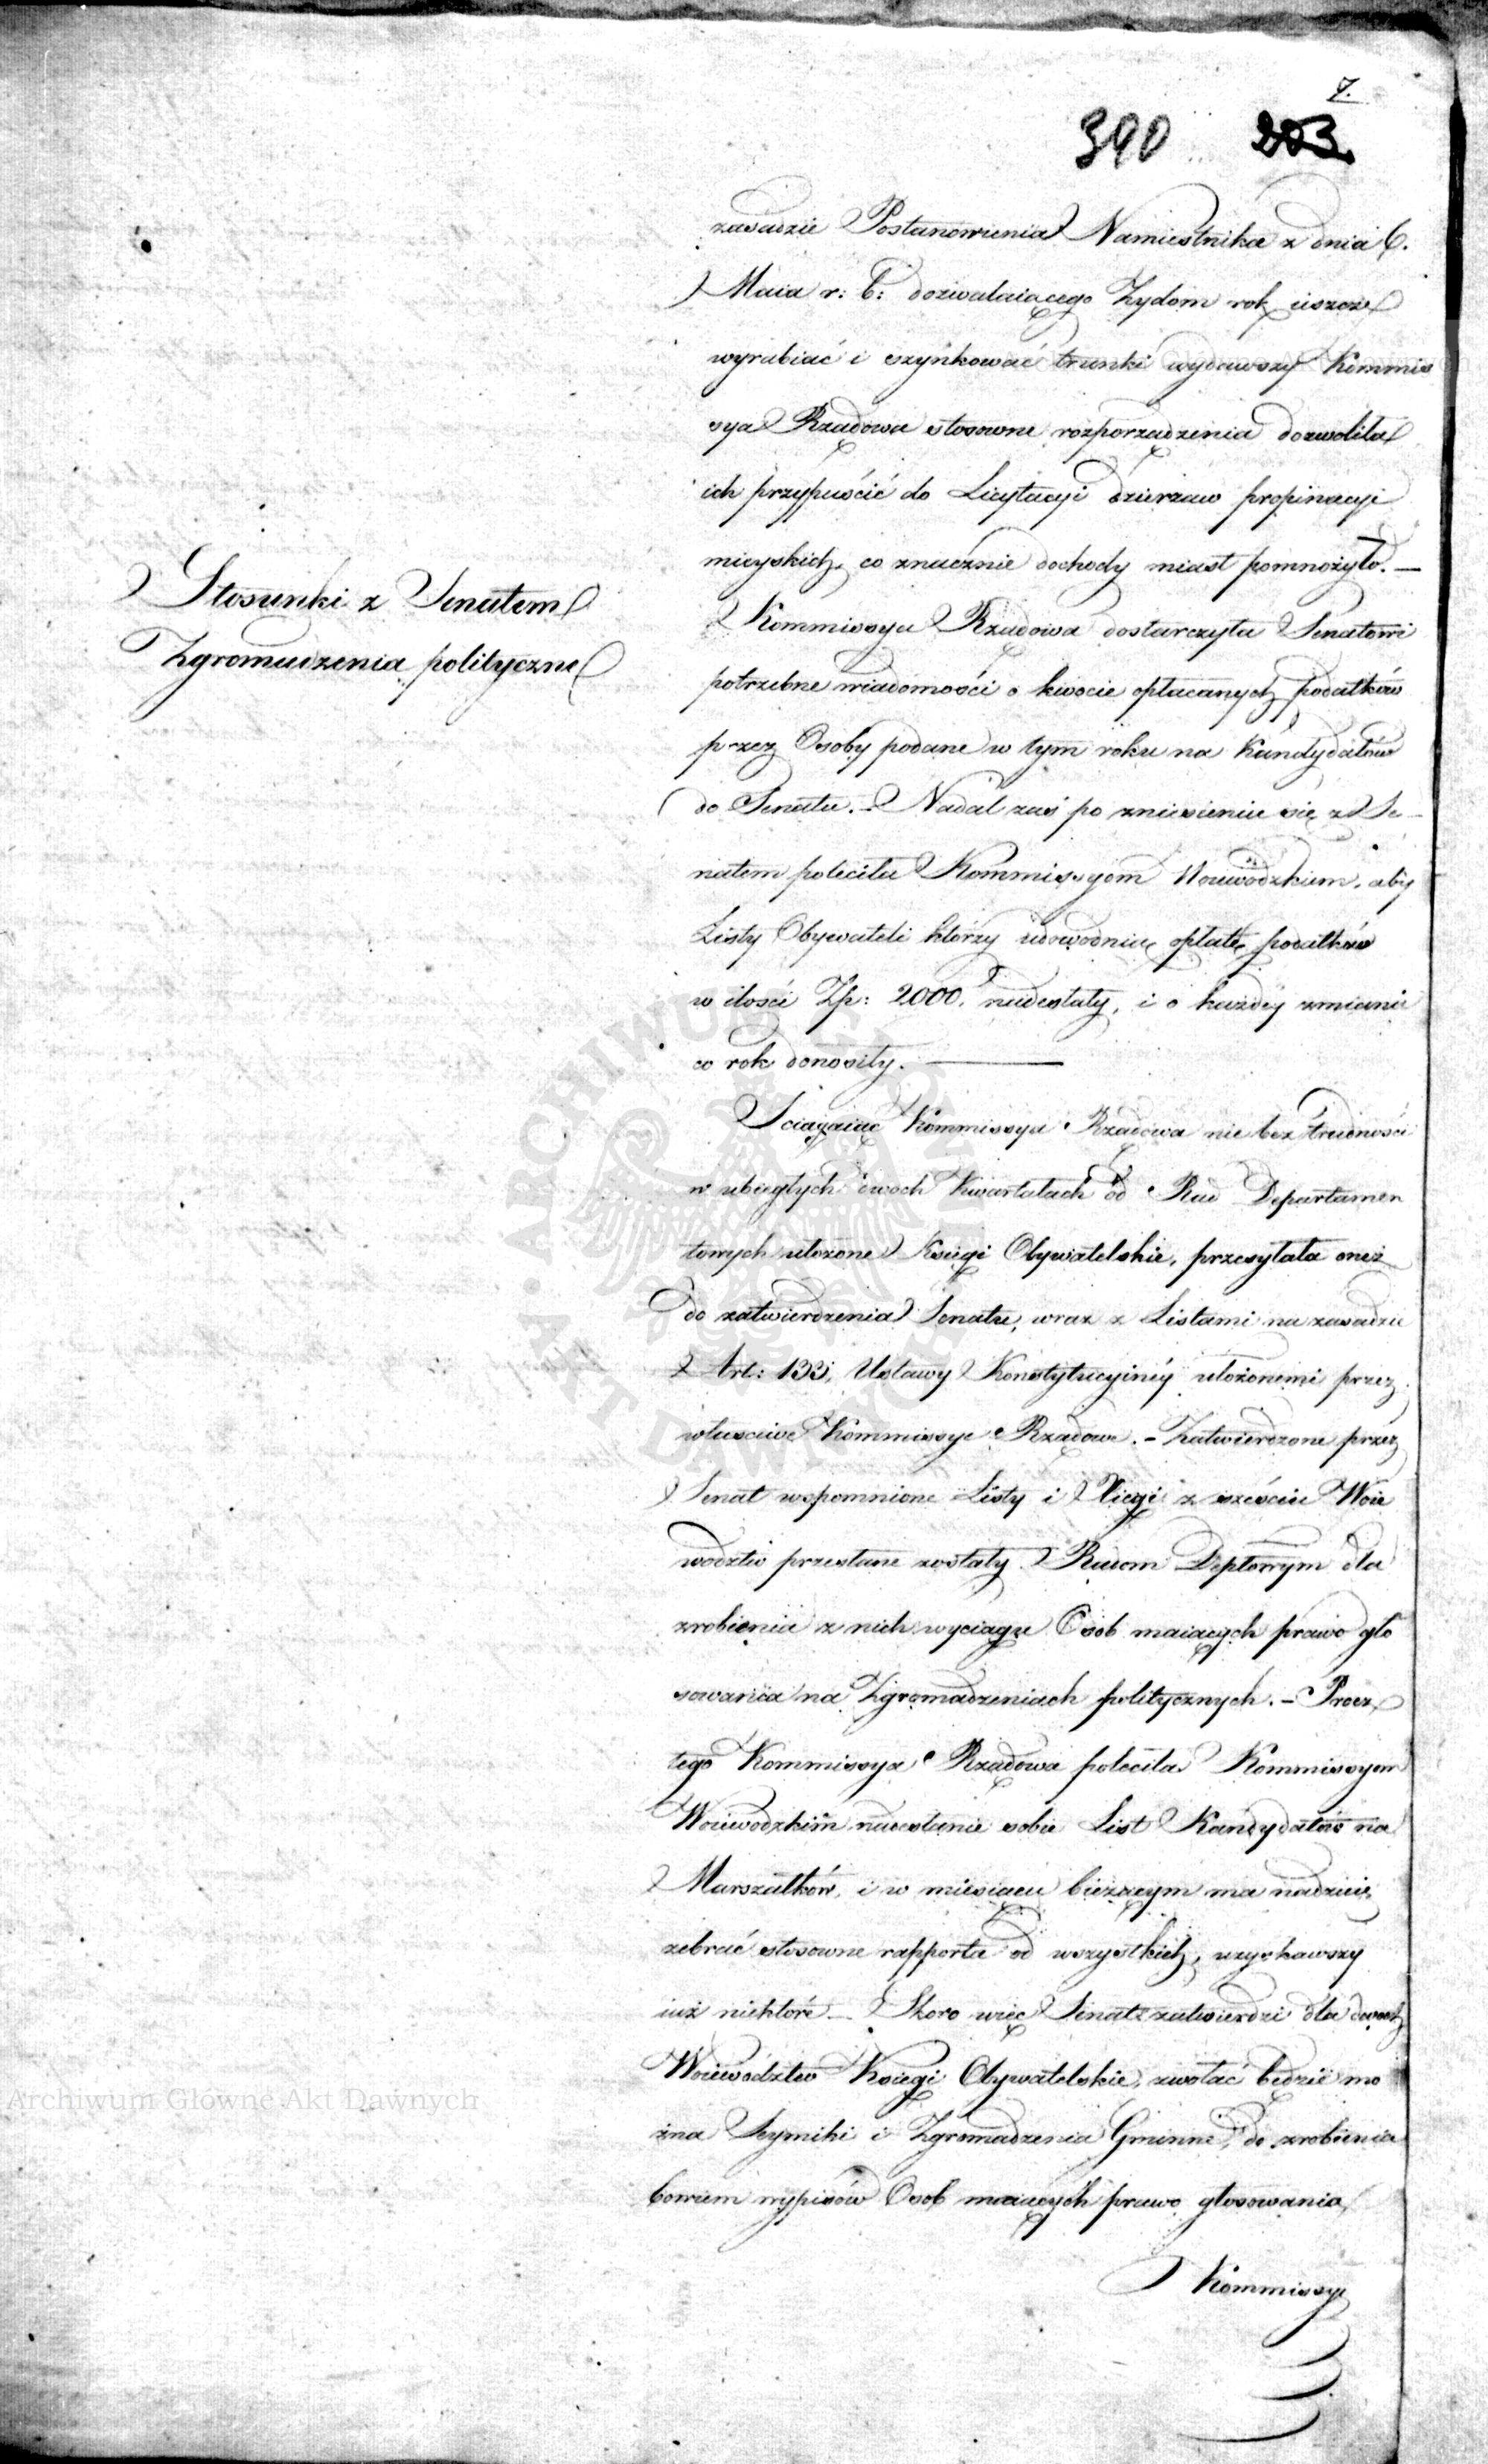 7.
390 203.
zasadzie Postanowienia Namiestnika z dnia 6.
Maia r: b: dozwalaiącego Żydom rok ieszcze
wyrabiać i szynkować trunki wydawszy Kommis
sya Rządowa stosowne rozporządzenia dozwoliła
ich przypuścić do Licytacyi dzierzaw propinacyi
mieyskich, co znacznie dochody miast pomnożyło. —
Stosunki z Senatem
Zgromadzenia polityczne
Kommissya Rządowa dostarczyła Senatowi
potrzebne wiadomości o kwocie opłacanych podatków
przez Osoby podane w tym roku na Kandydatów
do Senatu. — Nadal zaś po zniesieniu się z Se-
natem poleciła Kommissyom Woiewódzkim, aby
Listy Obywateli którzy udowodnią opłatę podatków
w ilości Zp: 2000. nadesłały, i o każdéy zmianie
co rok donosiły. —
Sciągaiąc Kommissya Rządowa nie bez trudności
w ubiegłych dwoch Kwartałach od Rad Departamen
towych ułożone Księgi Obywatelskie, przesyłała oneż
do zatwierdzenia Senatu, wraz z Listami na zasadzie
Art: 133, Ustawy Konstytucyinéy ułożonemi przez
właściwe Kommissye Rządowe. — Zatwierdzone przez
Senat wspomnione Listy i Xięgi z sześciu Woie
wodztw przesłane zostały Radom Deptowym dla
zrobienia z nich wyciągu Osob maiących prawo gło
sowania na Zgromadzeniach politycznych. — Procz
tego Kommissya Rządowa poleciła Kommissyom
Woiewodzkim nadesłanie sobie List Kandydatów na
Marszałków, i w miesiącu bieżącym ma nadzieię
zebrać stosowne rapporta od wszystkich, uzyskawszy
iuż niektóre — Skoro więc Senat zatwierdzi dla dwoch
Woiewództw Księgi Obywatelskie, zwołać będzie mo
żna Seymiki i Zgromadzenia Gminne, do zrobienia
bowiem wypisów Osob maiących prawo głosowania
Kommissye
ARCHIWUM GŁÓWNE AKT DAWNYCH
Archiwum Główne Akt Dawnych